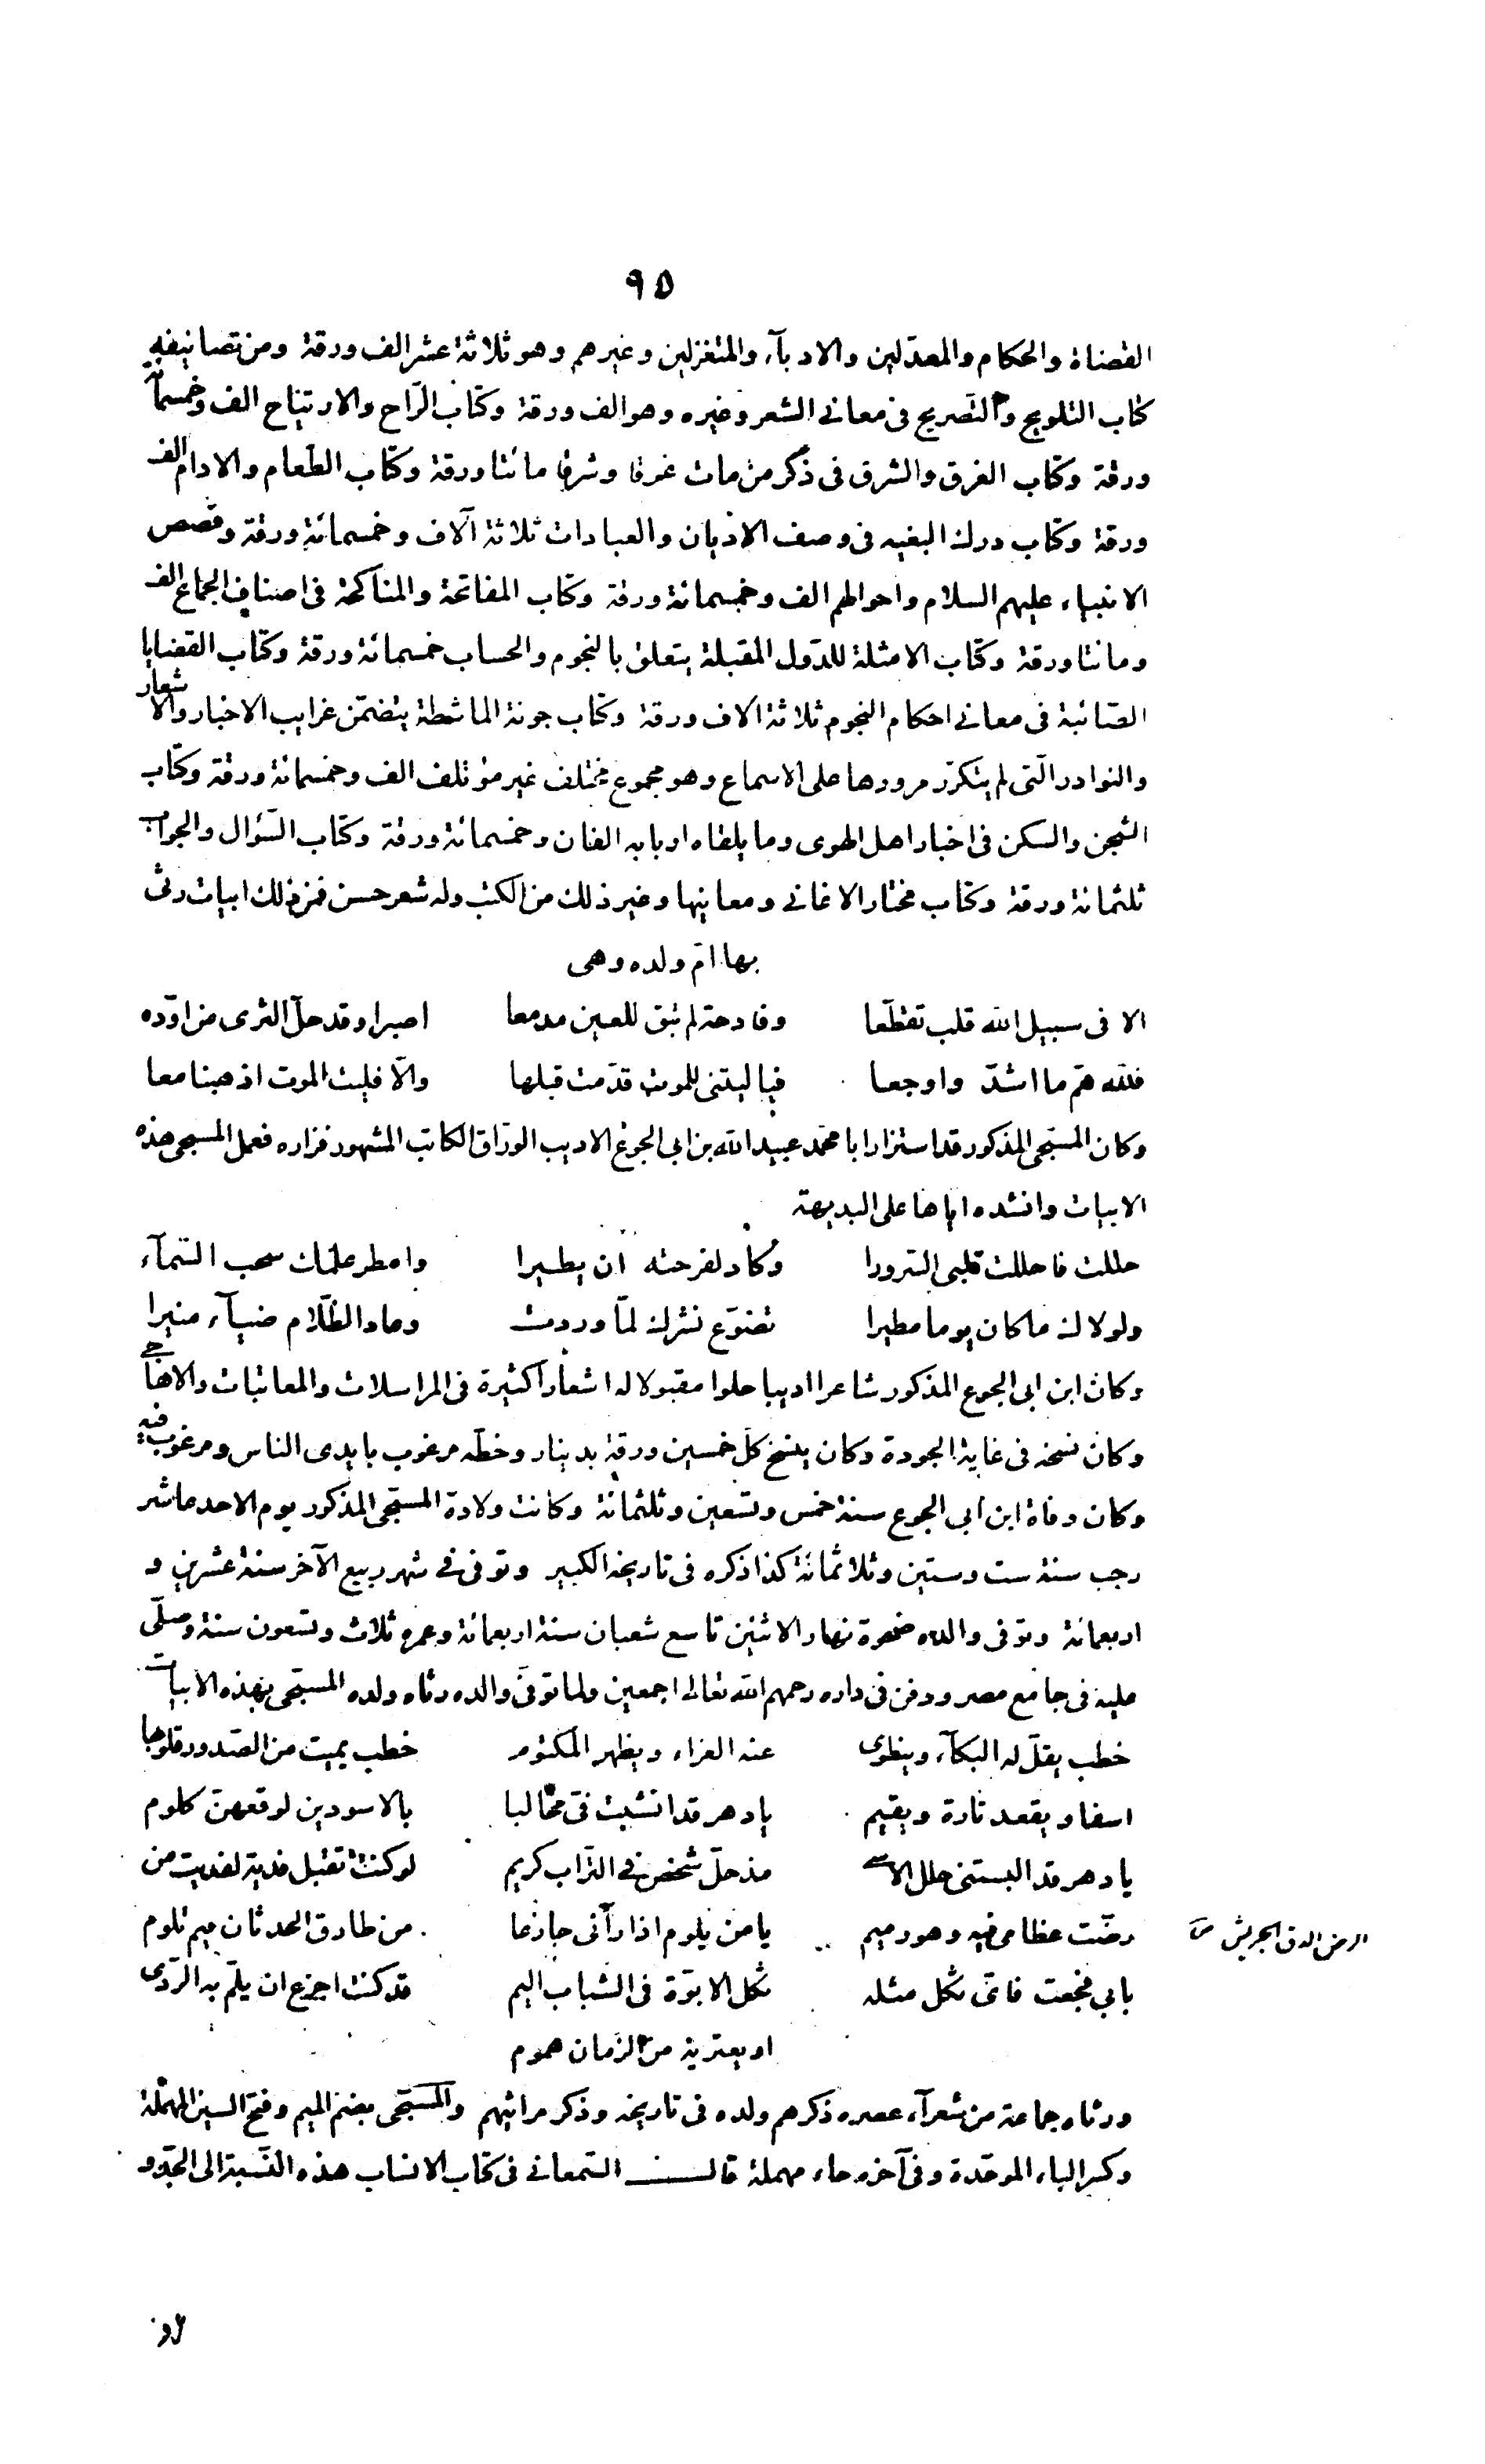 ٩٥
القضاة والحكام والمعدّلين والادبآء والمتغزلين وغيرهم وهو ثلاثة عشر الف ورقة ومن تصانيفه
كتاب التلويح والتصريح فى معانى الشعر وغيره وهو الف ورقة وكتاب الرّاح والارتياح الف وخمسمائة
ورقة وكتاب الغرق والشرق فى ذكر من مات غرقا وشرقا مائتا ورقة وكتاب الطعام والادام الف
ورقة وكتاب درك البغيه فى وصف الاديان والعبادات ثلاثة آلاف وخمسمائة ورقة وقصص
الانبياء عليهم السلام واحوالهم الف وخمسمائة ورقة وكتاب المفاتحة والمناكحة فى اصناف الجماع الف
ومائتا ورقة وكتاب الامثلة للدّول المقبلة يتعلق بالنجوم والحساب خمسمائة ورقة وكتاب القضايا
الصّائبة فى معانى احكام النجوم ثلاثة الاف ورقة وكتاب جونة الماشطة يتضمّن غرايب الاخبار والاشعار
والنوادر الّتى لم يتكرّر مرورها على الاسماع وهو مجموع مختلف غير مؤتلف الف وخمسمائة ورقة وكتاب
الشجن والسكن فى اخبار اهل الهوى وما يلقاه اربابه الفان وخمسمائة ورقة وكتاب السّؤال والجواب
ثلثمائة ورقة وكتاب مختار الاغانى ومعانيها وغير ذلك من الكتب وله شعر حسن فمن ذلك ابيات رثى
بها امّ ولده وهى
الا فى سبيل الله قلب تقطّعا وفادحة لم تبق للعين مدمعا اصبرا وقد حلّ الثرى من اودّه
فللّه همّ ما اشدّ واوجعا فيا ليتنى للموت قدّمت قبلها والّا فليت الموت اذهبنا معا
وكان المسبّحى المذكور قد استزار ابا محمّد عبيد الله بن ابى الجوع الاديب الورّاق الكاتب المشهور فزاره فعمل المسبحى هذه
الابيات وانشده اياها على البديهة
حللت فاحللت قلبى السّرورا وكاد لفرحته ان يطيرا وامطر علمك سحب السّمآء
ولولاك ما كان يوما مطيرا تضوّع نشرك لمّا وردت وعاد الظّلام ضيآء منيرا
وكان ابن ابى الجوع المذكور شاعرا اديبا حلوا مقبولا له اشعار كثيرة فى المراسلات والمعاتبات والاهاجى
وكان نسخه فى غاية الجودة وكان ينسخ كلّ خمسين ورقة بدينار وخطّه مرغوب بايدى الناس ومرغوب فيه
وكان وفاة ابن ابى الجوع سنة خمس وتسعين وثلثمائة وكانت ولادة المسبّحى المذكور يوم الاحد عاشر
رجب سنة ست وستين وثلاثمائة كذا ذكره فى تاريخه الكبير وتوفى فى شهر ربيع الآخر سنة عشرين و
اربعمائة وتوفى والده ضحوة نهار الاثنين تاسع شعبان سنة اربعمائة وعمره ثلاث وتسعون سنة وصلّى
عليه فى جامع مصر ودفن فى داره رحمهم الله تعالى اجمعين ولما توفّى والده رثاه ولده المسبّحى بهذه الابيات
خطب يقلّ له البكآء وينطوى عنه العزاء ويظهر المكتوم خطب يميت من الصّدور قلوبها
اسفا ويقعد تارة ويقيم يا دهر قد انشبت فىّ مخالبا بالاسودين لوقعهنّ كلوم
يا دهر قد البستنى حلل الاسى مذ حلّ شخص فى التّراب كريم لو كنت تقبل فدية لفديت من
رضّت عظامى فيه وهو رميم يا من يلوم اذا رآنى جازعا من طارق الحدثان فيم تلوم
الرض الدق الجريش ص
بابى فجعت فاىّ ثكل مثله ثكل الابوّة فى الشباب اليم قد كنت اجزع ان يلمّ به الرّدى
او يعتريه من الزمان هموم
ورثاه جماعة من شعرآء عصره ذكرهم ولده فى تاريخه وذكر مراثيهم والمسبّحى بضم الميم وفتح السين المهملة
وكسر الباء الموحّدة وفى آخره حاء مهملة قال السّمعانى فى كتاب الانساب هذه النّسبة الى الجدّ و